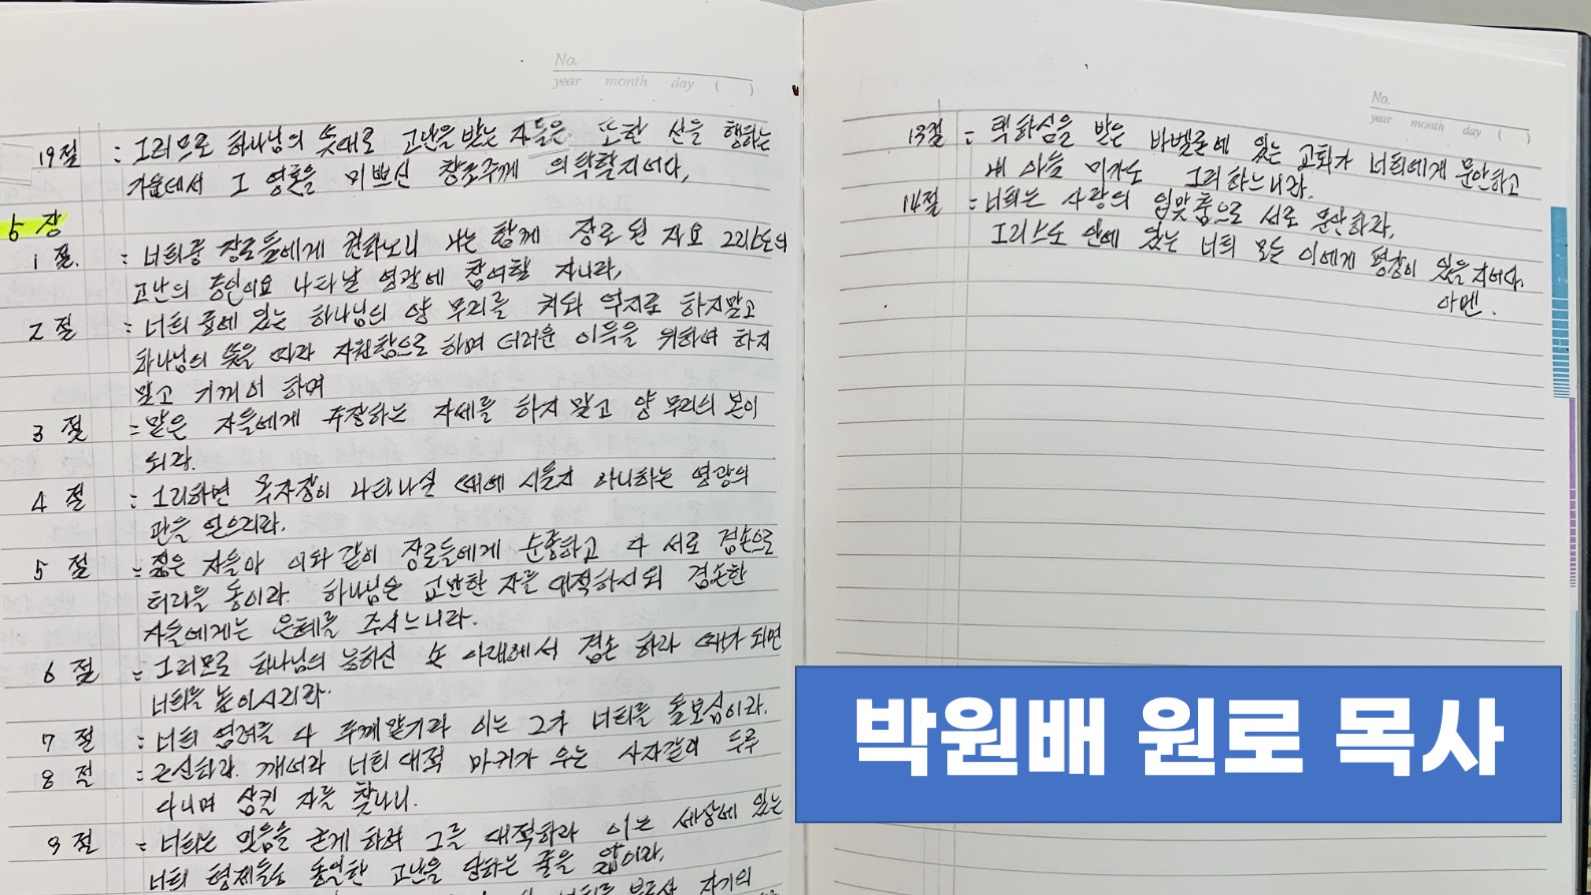 No.
year month day ( )
19절 : 그러므로 하나님의 뜻대로 고난을 받는 자들은 또한 선을 행하는
가운데서 그 영혼을 미쁘신 창조주께 의탁할지어다,
5 장
1 절. : 너희중 장로들에게 권하노니 나는 함께 장로 된 자요 그리스도의
고난의 증인이요 나타날 영광에 참여할 자니라,
2 절 : 너희 중에 있는 하나님의 양 무리를 치되 억지로 하지말고
하나님의 뜻을 따라 자원함으로 하며 더러운 이득을 위하여 하지
말고 기꺼이 하며
3 절 : 맡은 자들에게 주장하는 자세를 하지 말고 양 무리의 본이
되라.
4 절 : 그리하면 목자장이 나타나실 때에 시들지 아니하는 영광의
관을 얻으리라.
5 절 : 젊은 자들아 이와 같이 장로들에게 순종하고 다 서로 겸손으로
허리를 동이라. 하나님은 교만한 자를 대적하시되 겸손한
자들에게는 은혜를 주시느니라.
6 절 : 그러므로 하나님의 능하신 손 아래에서 겸손 하라 때가 되면
너희를 높이시리라.
7 절 : 너희 염려를 다 주께 맡기라 이는 그가 너희를 돌보심이라.
8 절 : 근신하라. 깨어라 너희 대적 마귀가 우는 사자같이 두루
다니며 삼킬 자를 찾나니.
9 절 : 너희는 믿음을 굳게 하여 그를 대적하라 이는 세상에 있는
너희 형제들도 동일한 고난을 당하는 줄을 앎이라,
자기의
No.
year month day ( )
13절 : 택하심을 받은 바벨론에 있는 교회가 너희에게 문안하고
내 아들 마가도 그리하느니라.
14절 : 너희는 사랑의 입맞춤으로 서로 문안하라,
그리스도 안에 있는 너희 모든 이에게 평강이 있을지어다.
아멘.
박원배 원로 목사